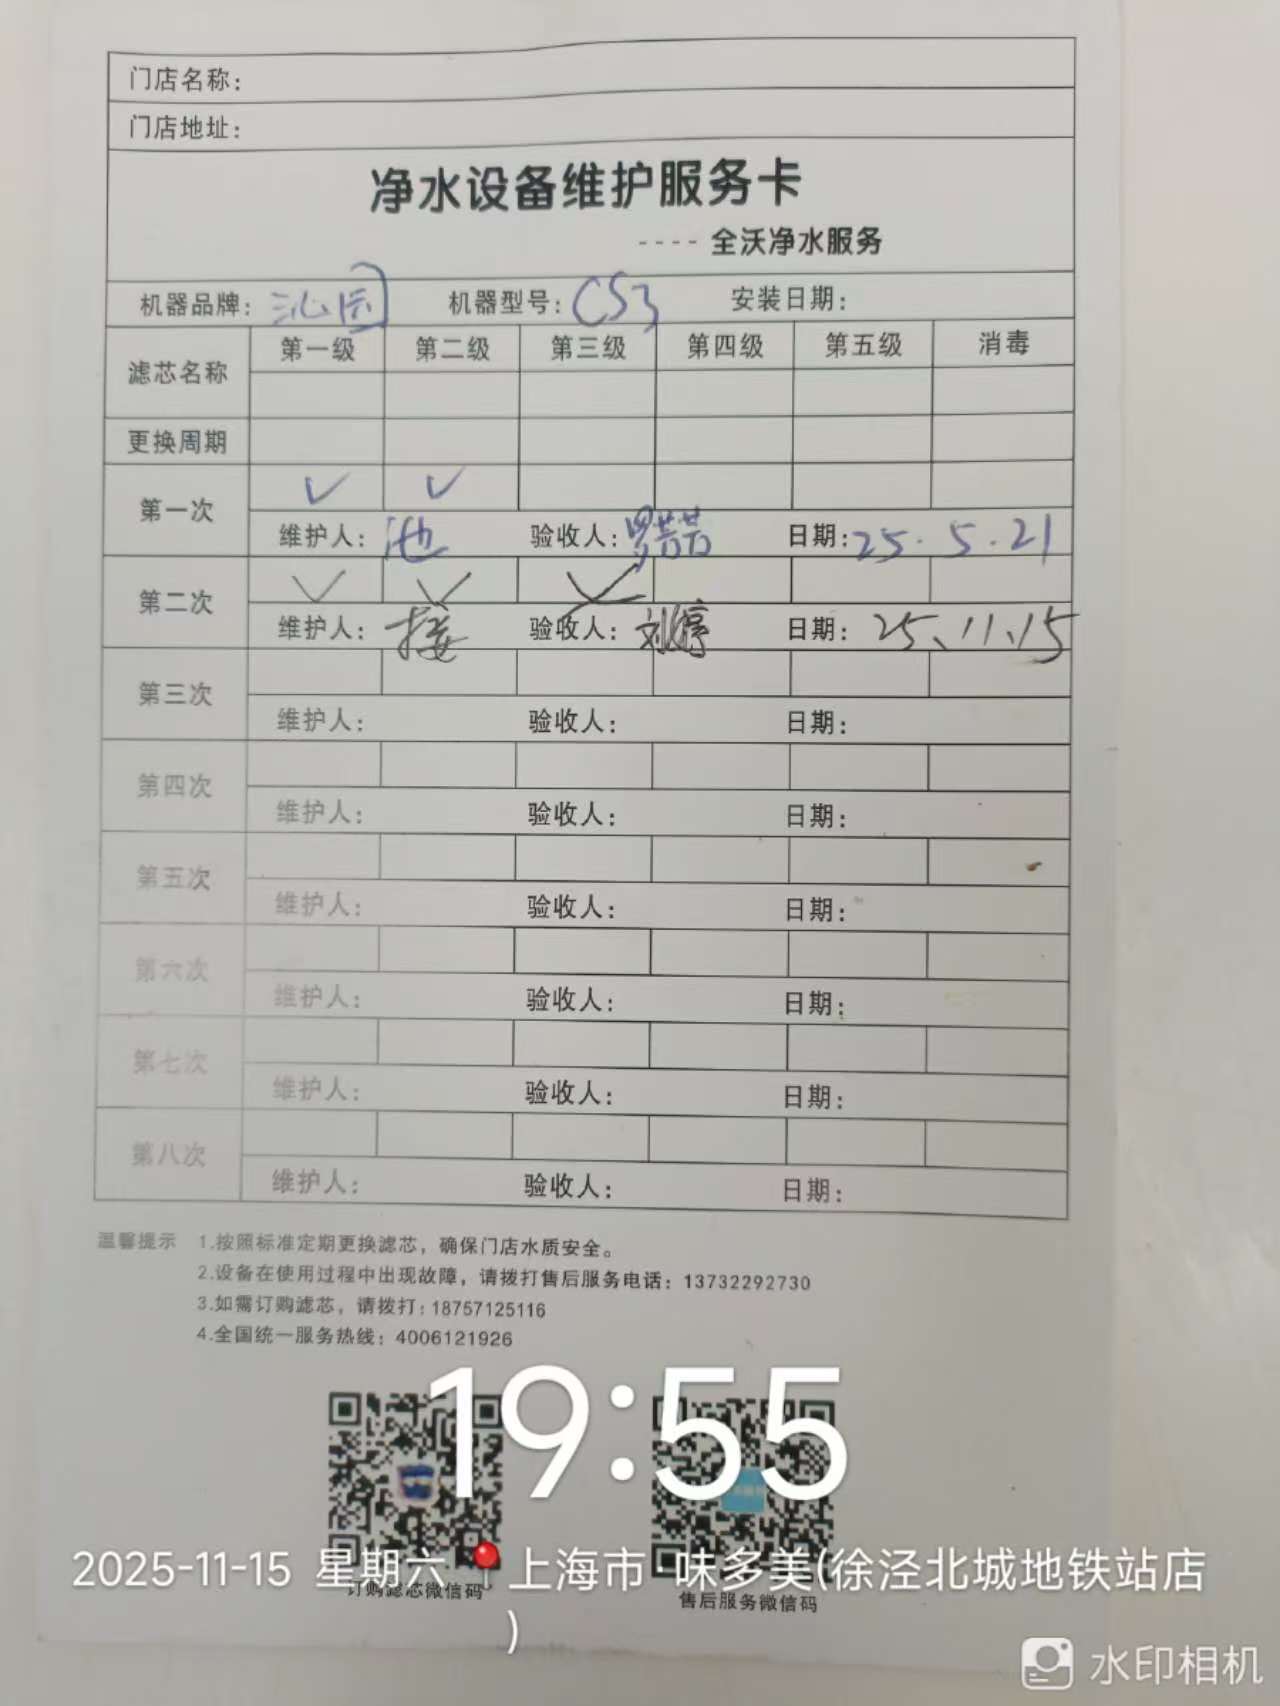 门店名称：
门店地址：
净水设备维护服务卡
---- 全沃净水服务
机器品牌：沁园 机器型号：CS3 安装日期：
滤芯名称 第一级 第二级 第三级 第四级 第五级 消毒
更换周期
第一次 ✓ ✓
维护人：池 验收人：罗芸芸 日期：25.5.21
第二次 ✓ ✓ ✓
维护人：接 验收人：刘婷 日期：25、11、15
第三次
维护人： 验收人： 日期：
第四次
维护人： 验收人： 日期：
第五次
维护人： 验收人： 日期：
第六次
维护人： 验收人： 日期：
第七次
维护人： 验收人： 日期：
第八次
维护人： 验收人： 日期：
温馨提示 1.按照标准定期更换滤芯，确保门店水质安全。
2.设备在使用过程中出现故障，请拨打售后服务电话：13732292730
3.如需订购滤芯，请拨打：18757125116
4.全国统一服务热线：4006121926
19:55
2025-11-15 星期六 上海市·味多美(徐泾北城地铁站店
)
订购滤芯微信码 售后服务微信码
水印相机